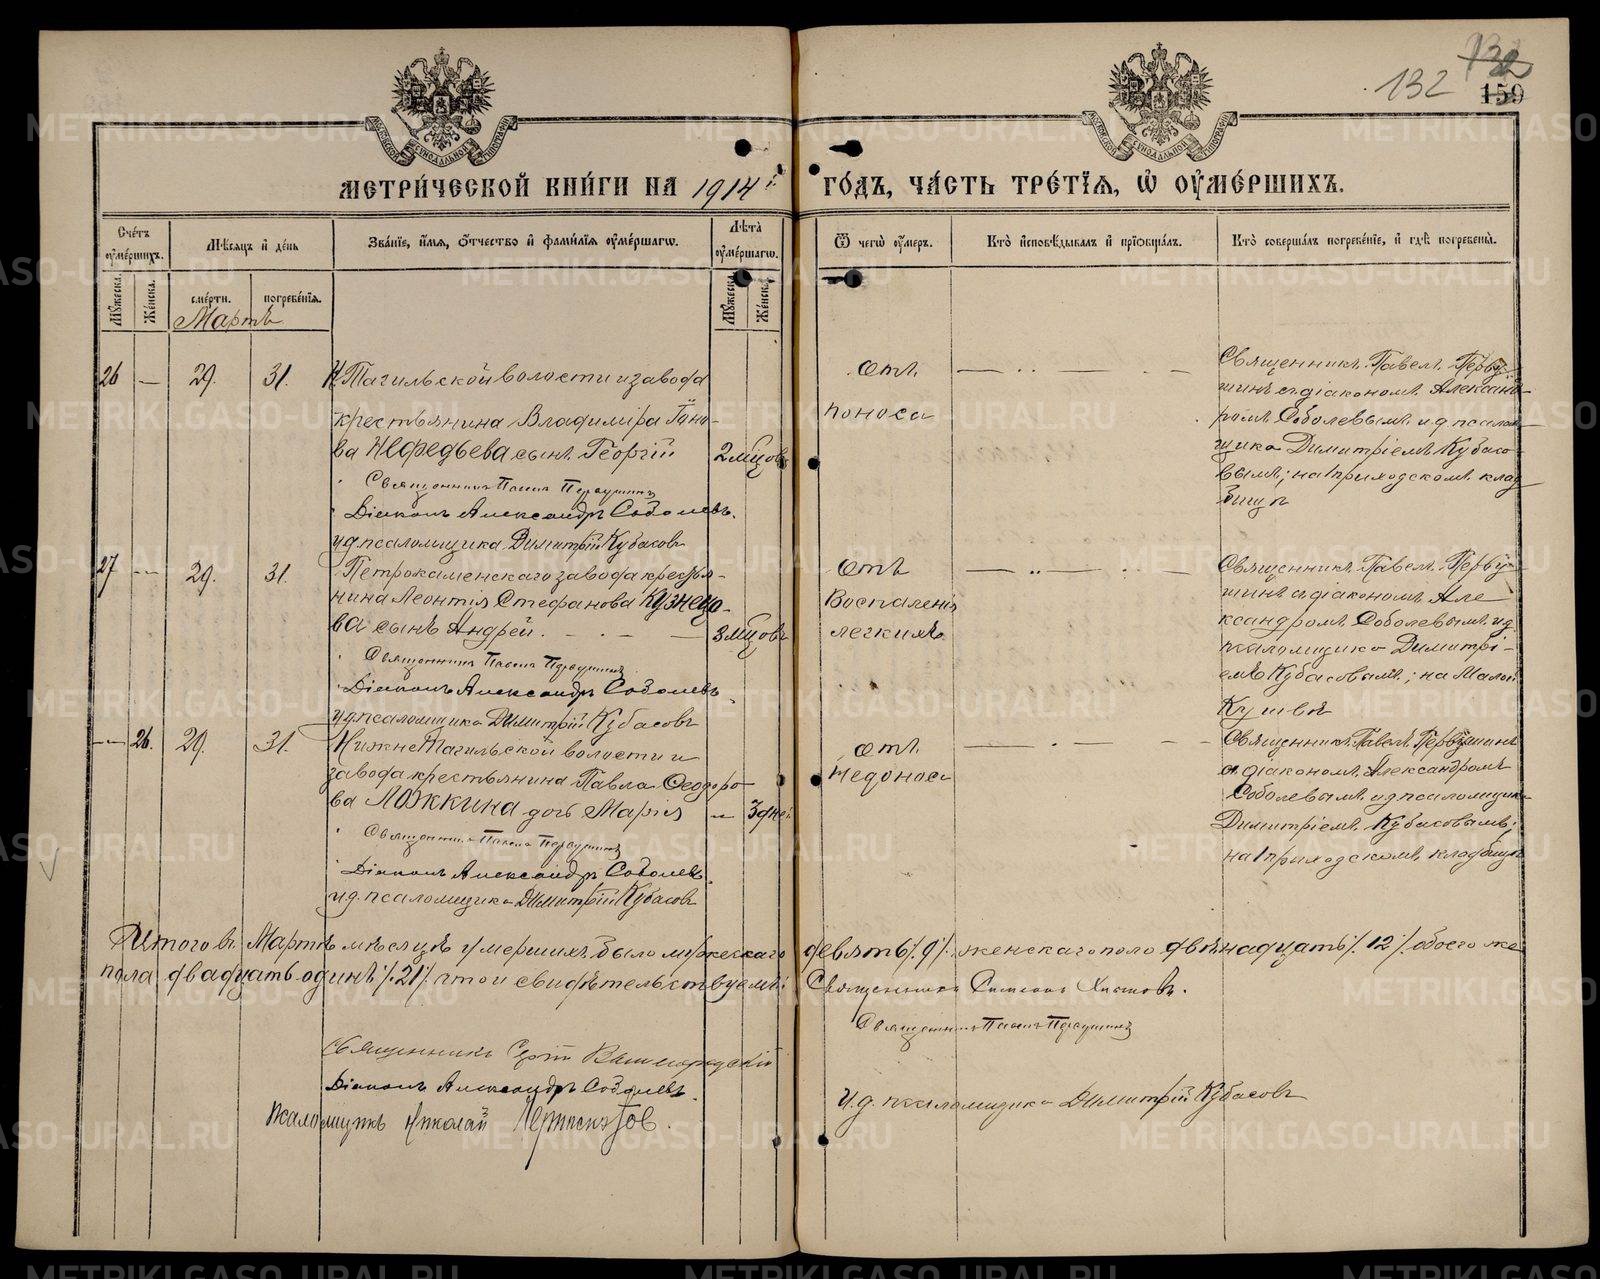 132
159
МЕТРИ́ЧЕСКОЙ КНИ́ГИ НА 1914 й
ГО́ДЪ, ЧА́СТЬ ТРЕ́ТІѦ, Ѡ҆ ОУ҆МЕ́РШИХЪ.
Сче́тъ оу҆ме́ршихъ.
Мѣ́сяцъ и҆ де́нь
Зва́ніе, и҆́мѧ, ѻ҆́тчество и҆ фами́лїѧ оу҆ме́ршагѡ.
Лѣ́та оу҆ме́ршагѡ.
Ѿ чегѡ̀ оу҆́меръ.
Кто̀ и҆сповѣ́дывалъ и҆ прїѡбща́лъ.
Кто̀ соверша́лъ погребе́нїе, и҆ гдѣ̀ погребены̀.
Мꙋ́жеска.
Же́нска.
сме́рти.
погребе́нїѧ.
Мꙋ́жеска.
Же́нска.
Мартъ
26 — 29. 31. Н. Тагильской волости и завода
крестьянина Владиміра Іоно-
ва Нефедьева сынъ Георгій 2 мѣцовъ
Священникъ Павелъ Первушинъ
Діаконъ Александръ Соболевъ.
и д. псаломщика Димитрій Кубасовъ
отъ
поноса
Священникъ Павелъ Перву-
шинъ съ діакономъ Александ-
ромъ Соболевымъ и д. псалом-
щика Димитріемъ Кубасо-
вымъ; на приходскомъ клад-
бищѣ
27 — 29. 31. Петрокаменскаго завода крестья-
нина Леонтія Стефанова Кузнецо-
ва сынъ Андрей. 3 мѣцовъ
Священникъ Павелъ Первушинъ
Діаконъ Александръ Соболевъ.
и д. псаломщика Димитрій Кубасовъ
Отъ
Воспаленія
легкихъ
Священникъ Павелъ Перву-
шинъ съ діакономъ Але
ксандромъ Соболевымъ и д.
псаломщика Димитрі-
емъ Кубасовымъ; на Малой
Кушвѣ
— 26. 29. 31. НижнеТагильской волости и
завода крестьянина Павла Ѳеодоро-
ва Ложкина дочь Марія — 3 дней
Священникъ Павелъ Первушинъ
Діаконъ Александръ Соболевъ.
и д. псаломщика Димитрій Кубасовъ
отъ
Недоноса
Священникъ Павелъ Первушинъ
съ діакономъ Александромъ
Соболевымъ и д. псаломщика
Димитріемъ Кубасовымъ;
на приходскомъ кладбищѣ
Итого въ Мартѣ мѣсяцѣ умершихъ было мужескаго девять /.9/. женскаго пола двѣнадцать /.12/. обоего же
пола двадцать одинъ /.21/. что и свидѣтельствуемъ: Священникъ Симеонъ
Священникъ Павелъ Первушинъ
священникъ Сергій
Діаконъ Александръ Соболевъ.
Псаломщикъ Николай
И. д. псаломщика Димитрій Кубасовъ
METRIKI.GASO-URAL.RU